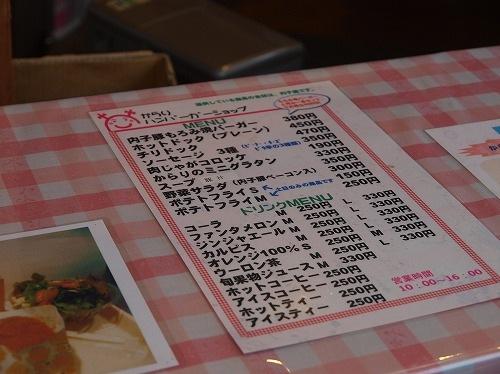 からり
ハンバーガーショップ
MENU
内子豚もろみ焼バーガー 380円
ホットドック（プレーン） 450円
チリドック 470円
ソーセージ 3種
肉じゃがコロッケ 190円
からりのミニグラタン 350円
スープ 150円
野菜サラダ（内子豚ベーコンス）
ポテトフライS 土日のみの商品です 150円
ポテトフライM 250円
ドリンクMENU
コーラ M 250円 L 330円
ファンタメロン M 250円 L 330円
ジンジャエール M 250円 L 330円
カルピス M 250円 L 330円
オレンジ100% S 250円
ウーロン茶 M 250円 L 330円
旬果物ジュース M 330円
ホットコーヒー 250円
アイスコーヒー 250円
ホットティー 250円
アイスティー 250円
営業時間
10：00～16：00